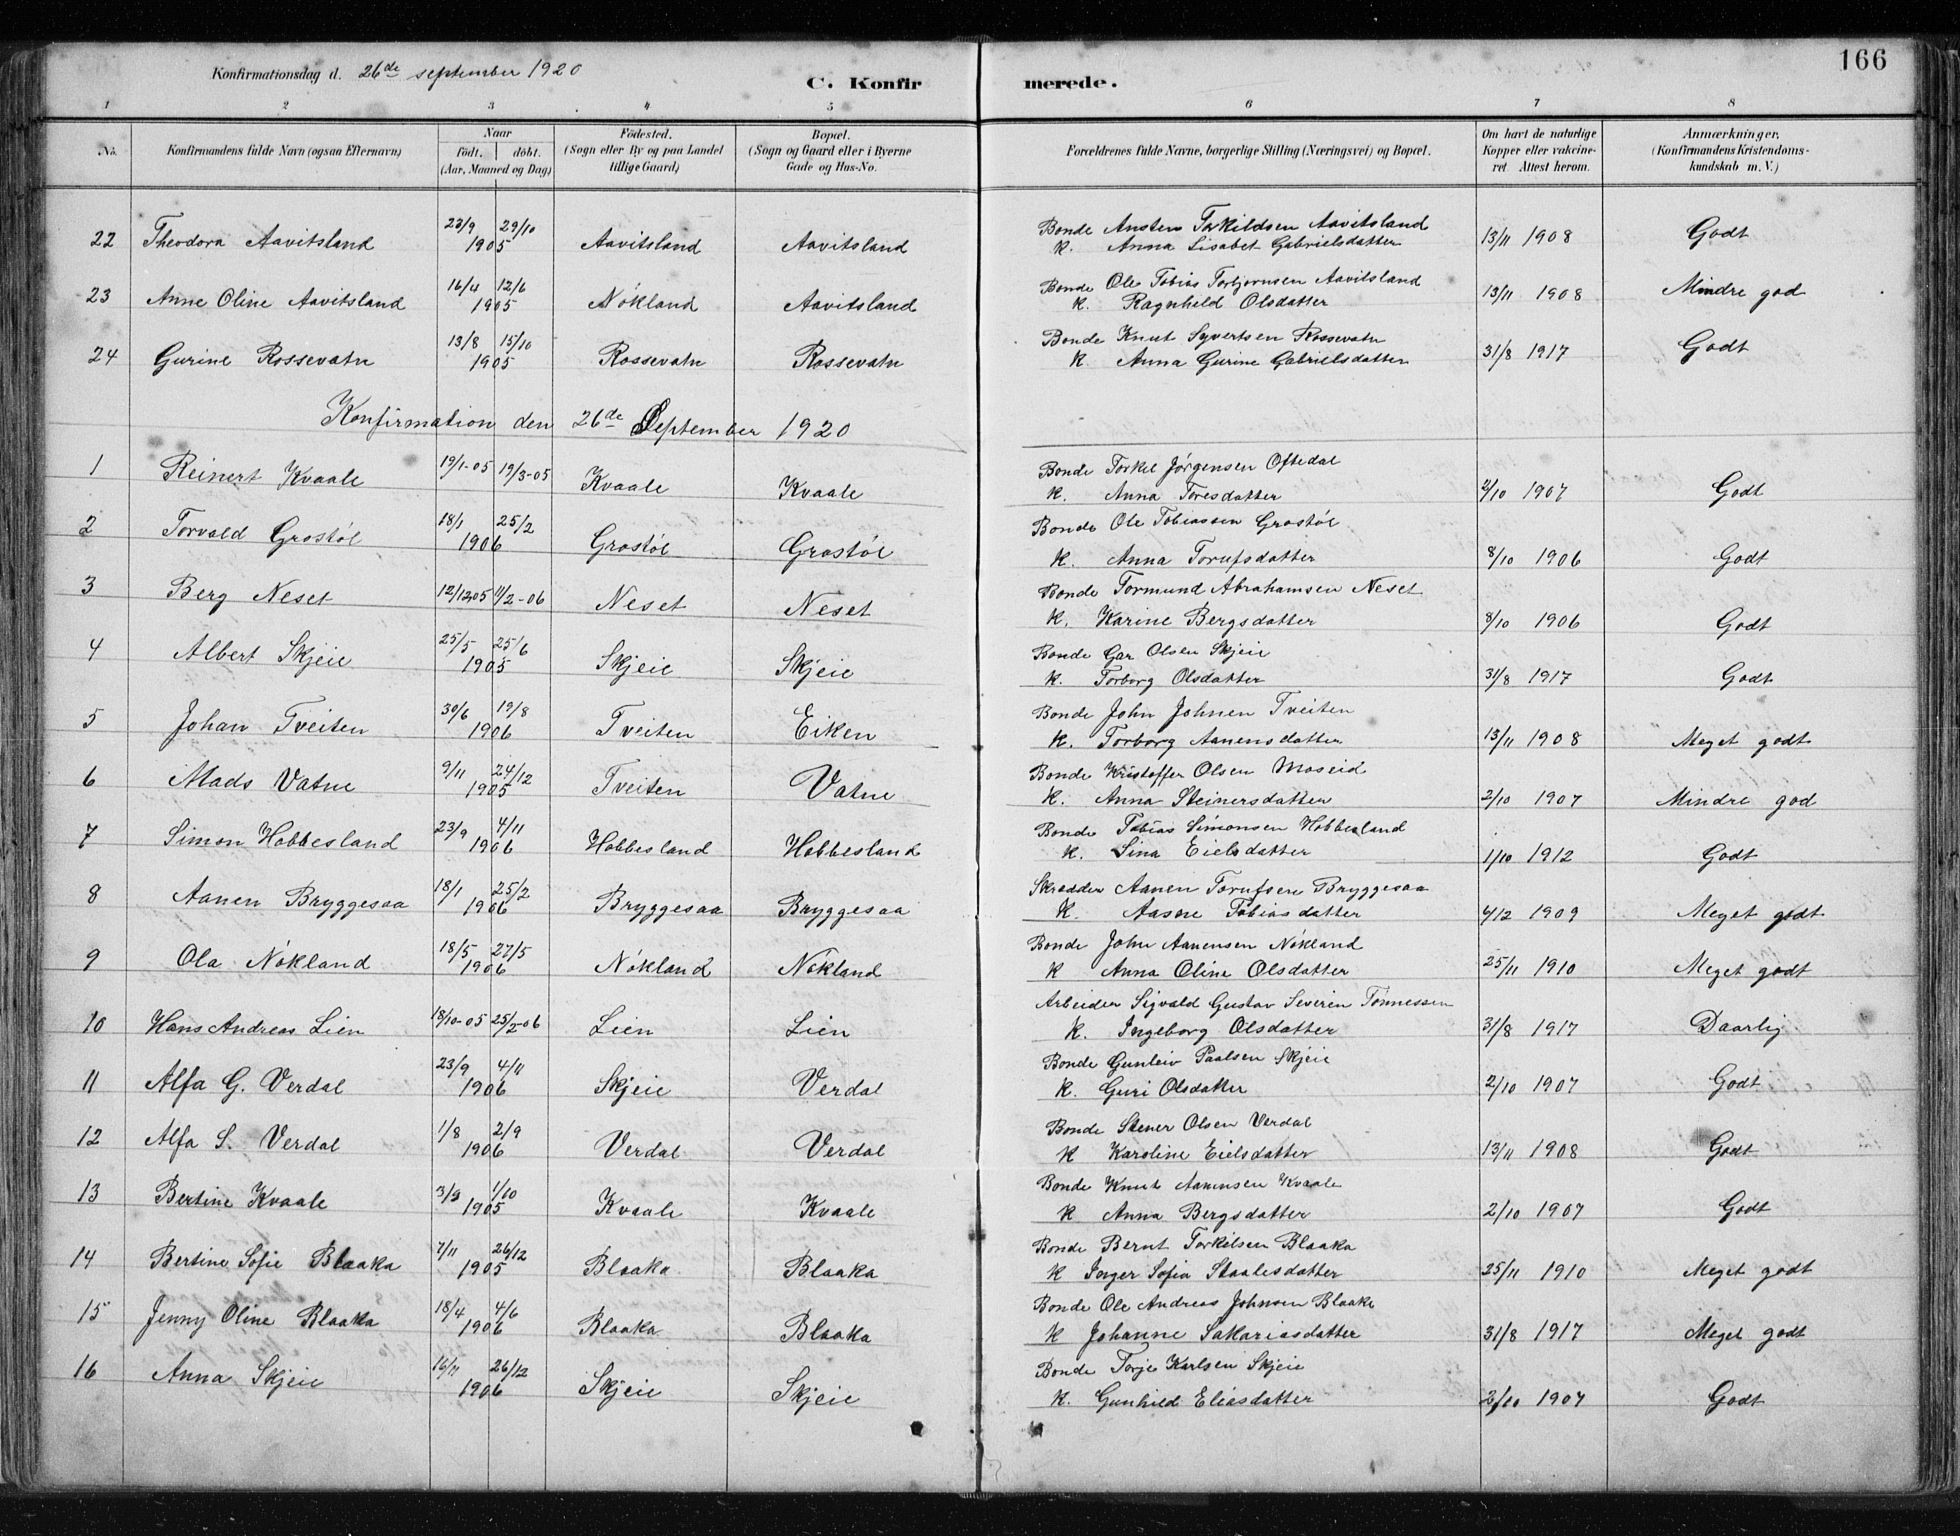 166
Konfirmationsdag d. 26de september 1920
C. Konfirmerede.
1 2 3 4 5 6 7 8
No. | Konfirmandens fulde Navn (ogsaa Efternavn) | Naar födt. döbt. (Aar, Maaned og Dag) | Födested. (Sogn eller By og paa Landet tillige Gaard) | Bopæl. (Sogn og Gaard eller i Byerne Gade og Hus-No. | Forældrenes fulde Navne, borgerlige Stilling (Næringsvei) og Bopæl. | Om havt de naturlige Kopper eller vakcineret. Attest herom. | Anmærkninger. (Konfirmandens Kristendomskundskab m. V.)
22 Theodora Aavitsland 23/9 29/10 1905 Aavitsland Aavitsland Bonde Ansten Torkildsen Aavitsland K. Anna Lisabet Gabrielsdatter 13/11 1908 Godt
23 Anne Oline Aavitsland 16/4 12/6 1905 Nökland Aavitsland Bonde Ole Tobias Torbjornsen Aavitsland K. Ragnhild Olsdatter 13/11 1908 Mindre god
24 Gurine Rossevatn 13/8 15/10 1905 Rossevatn Rossevatn Bonde Knut Syvertsen Rossevatn K Anna Gurine Gabrielsdatter 31/8 1917 Godt
Konfirmation den 26de September 1920
1 Reinert Kvaale 19/1-05 19/3-05 Kvaale Kvaale Bonde Torkel Jörgensen Oftedal K. Anna Toresdatter 2/10 1907 Godt
2 Torvald Grostöl 18/1 25/2 1906 Grostöl Grostöl Bonde Ole Tobiassen Grostöl K. Anna Torufsdatter 8/10 1906 Godt
3 Berg Neset 12/12 05 11/2-06 Neset Neset Bonde Tormund Abrahamsen Neset K. Karine Bergsdatter 8/10 1906 Godt
4 Albert Skjeie 25/5 25/6 1905 Skjeie Skjeie Bonde Gar Olsen Skjeie K. Torborg Olsdatter 31/8 1917 Godt
5 Johan Tveiten 30/6 19/8 1906 Tveiten Eiken Bonde John Johnen Tveiten K. Torborg Aanensdatter 13/11 1908 Meget godt
6 Mads Vatne 9/11 24/12 1905 Tveiten Vatne Bonde Kristoffer Olsen Moseid K. Anna Steinersdatter 2/10 1907 Mindre god
7 Simon Hobbesland 23/9 4/11 1906 Hobbesland Hobbesland Bonde Tobias Simonsen Hobbesland K. Sina Eielsdatter 1/10 1912 Godt
8 Aanen Bryggesaa 18/1 25/2 1906 Bryggesaa Bryggesaa Skrædder Aanen Torufsen Bryggesaa K. Aasne Tobiasdatter 4/12 1909 Meget godt
9 Ola Nökland 18/5 27/5 1906 Nökland Nökland Bonde John Aanensen Nökland K Anna Oline Olsdatter 25/11 1910 Meget godt
10 Hans Andreas Lien 18/10-05 25/2-06 Lien Lien Arbeider Sigvald Gustav Severin Tönnessen K. Ingeborg Olsdatter 31/8 1917 Daarlig
11 Alfa G. Verdal 23/9 4/11 1906 Skjeie Verdal Bonde Gunleiv Paalsen Skjeie K. Guri Olsdatter 2/10 1907 Godt
12 Alfa S. Verdal 1/8 2/9 1906 Verdal Verdal Bonde Stener Olsen Verdal K Karoline Eielsdatter 13/11 1908 Godt
13 Bertine Kvaale 3/9 1/10 1905 Kvaale Kvaale Bonde Knut Aanensen Kvaale K Anna Bergsdatter 2/10 1907 Godt
14 Bertine Sofie Blaaka 7/11 26/12 1905 Blaaka Blaaka Bonde Bernt Torkilsen Blaaka K Inger Sofia Staalesdatter 25/11 1910 Meget godt
15 Jenny Oline Blaaka 18/4 4/6 1906 Blaaka Blaaka Bonde Ole Andreas Johnsen Blaaka K Johanne Sakariasdatter 31/8 1917 Meget godt
16 Anna Skjeie 16/11 26/12 1906 Skjeie Skjeie Bonde Torje Karlsen Skjeie K. Gunhild Eliasdatter 2/10 1907 Godt